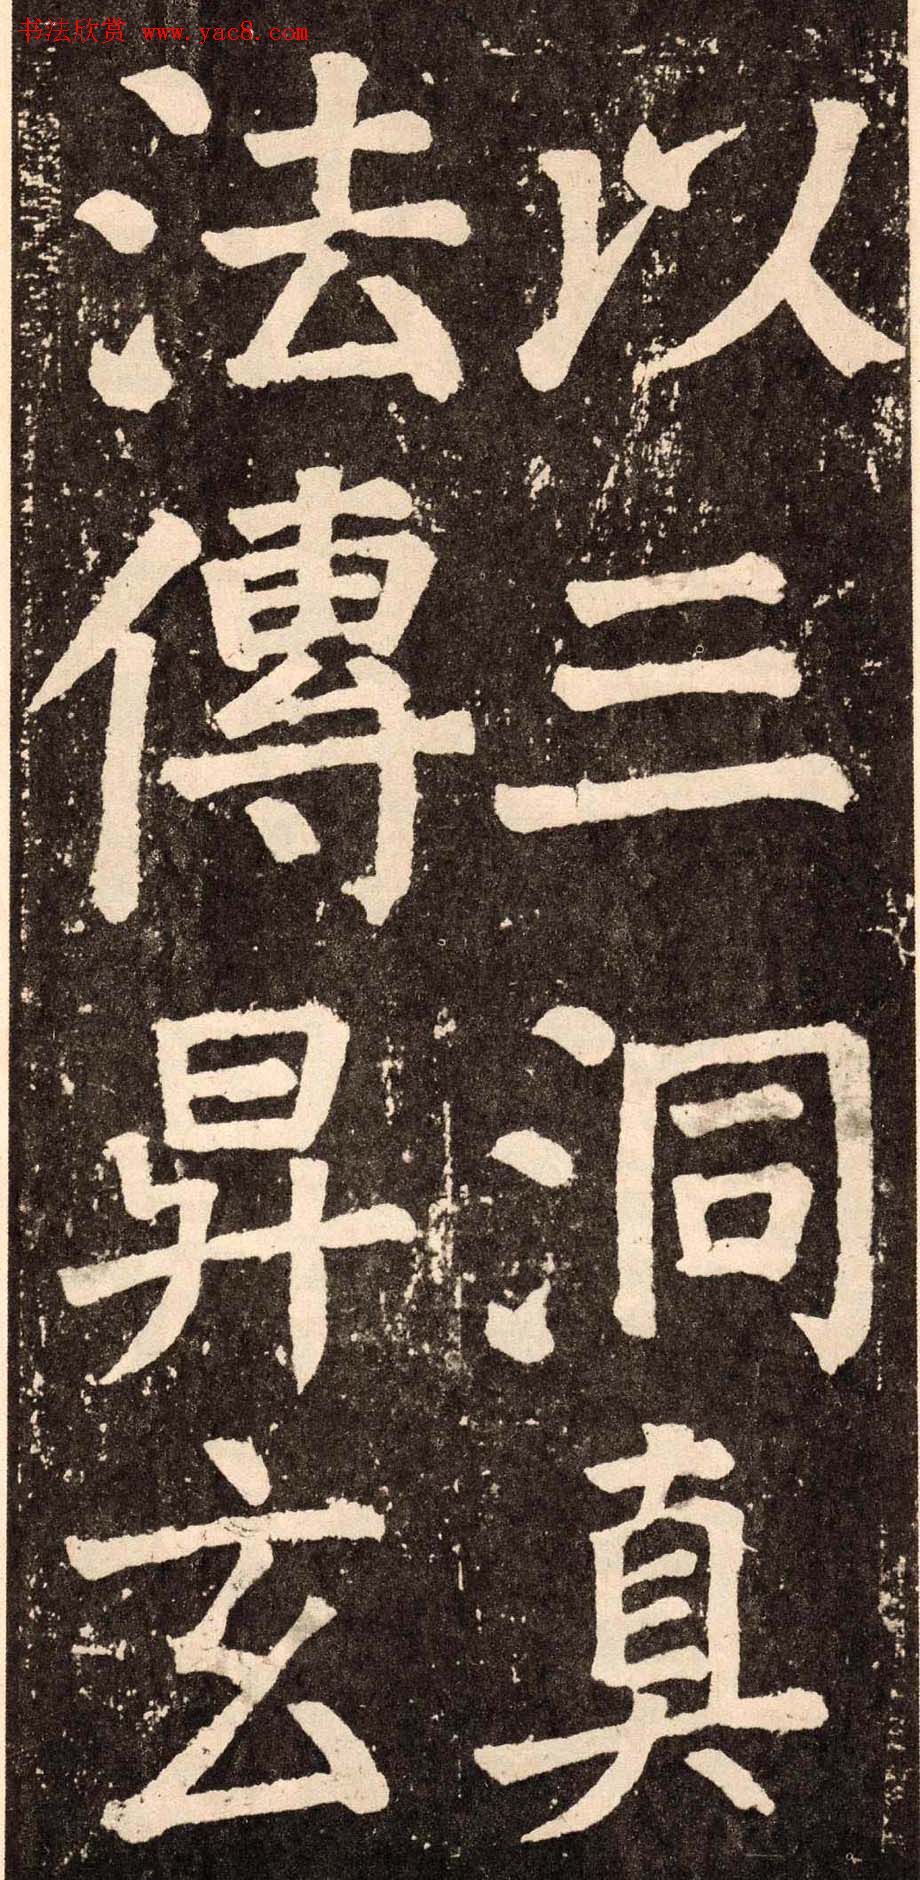 书法欣赏 www.yac8.com
以三洞真
法傳昇玄